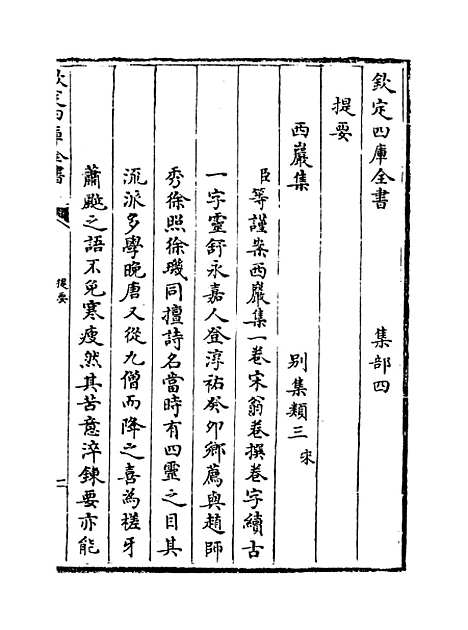 欽定四庫全書　　　集部四
提要
西巖集　　　别集類三宋
臣等謹案西巖集一卷宋翁卷撰卷字續古
一字靈舒永嘉人登淳祐癸卯鄉薦與趙師
秀徐照徐璣同擅詩名當時有四靈之目其
流派多學晩唐又從九僧而降之喜為槎牙
蕭颼之語不免寒瘦然其苦意淬鍊要亦能
欽定四庫全書
提要